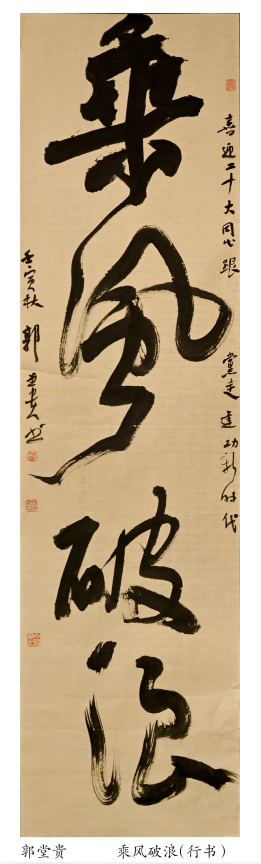 喜迎二十大同心跟 黨走 建功新时代
乘風破浪
壬寅秋 郭堂贵书
郭堂贵 乘风破浪(行书)